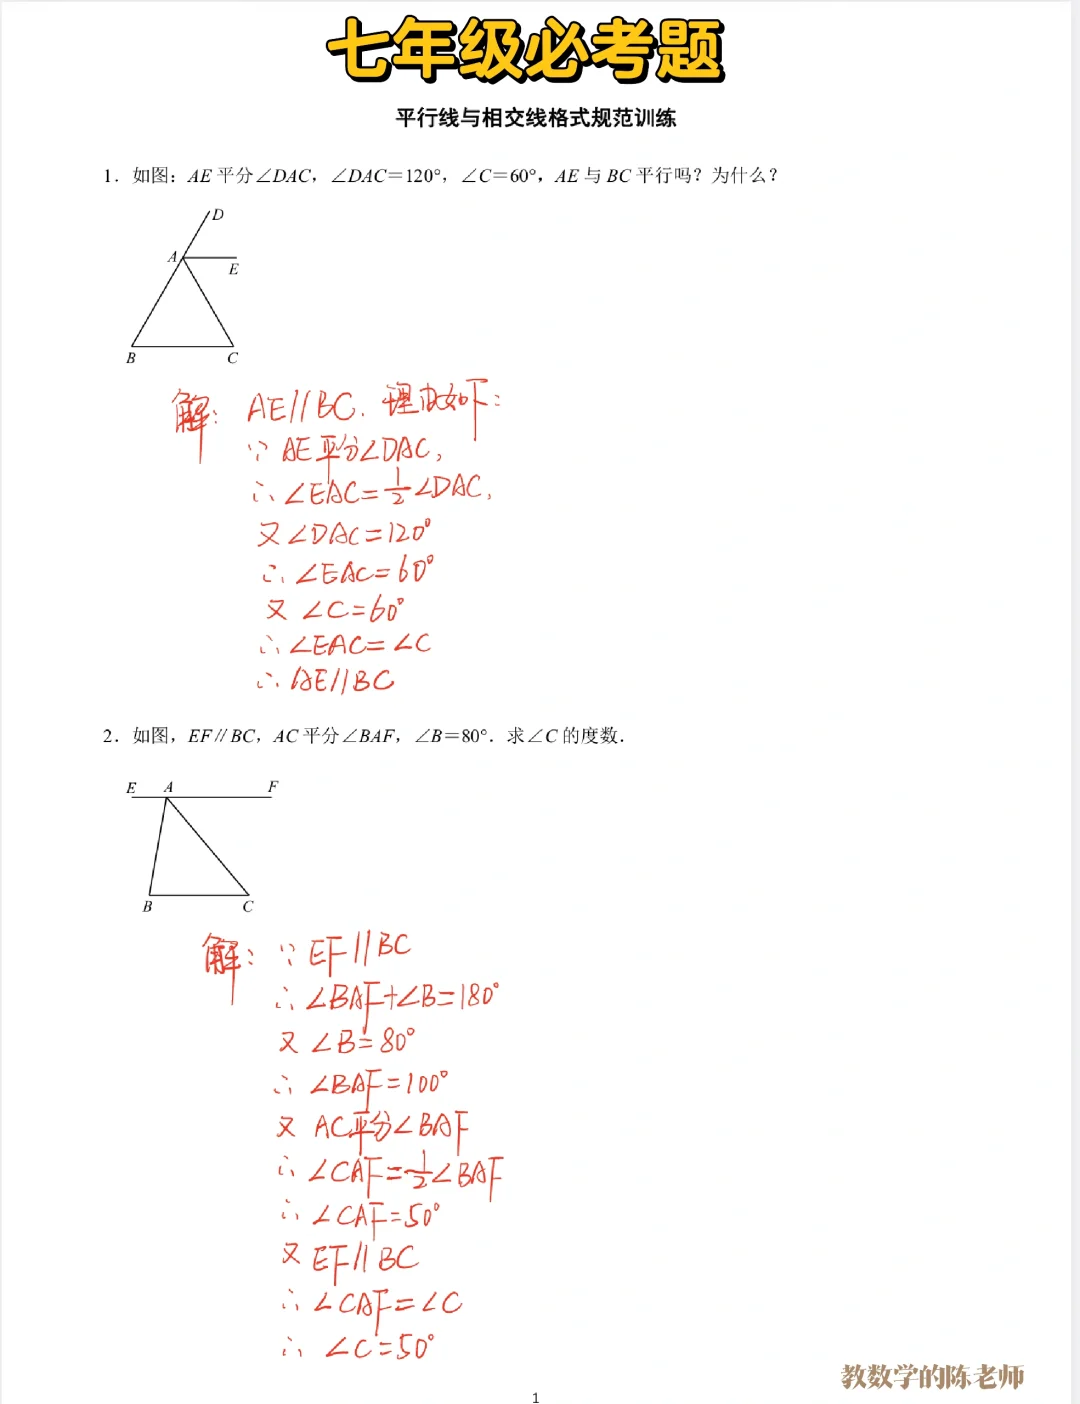 七年级必考题
平行线与相交线格式规范训练
1. 如图：AE 平分∠DAC，∠DAC＝120°，∠C＝60°，AE 与 BC 平行吗？为什么？
D
A
E
B C
解：AE//BC. 理由如下：
∵ AE平分∠DAC,
∴ ∠EAC=½∠DAC,
又 ∠DAC=120°
∴ ∠EAC=60°
又 ∠C=60°
∴ ∠EAC=∠C
∴ AE//BC
2. 如图，EF∥BC，AC 平分∠BAF，∠B＝80°．求∠C 的度数．
E A F
B C
解：∵ EF//BC
∴ ∠BAF+∠B=180°
又 ∠B=80°
∴ ∠BAF=100°
又 AC平分∠BAF
∴ ∠CAF=½∠BAF
∴ ∠CAF=50°
又 EF//BC
∴ ∠CAF=∠C
∴ ∠C=50°
教数学的陈老师
1